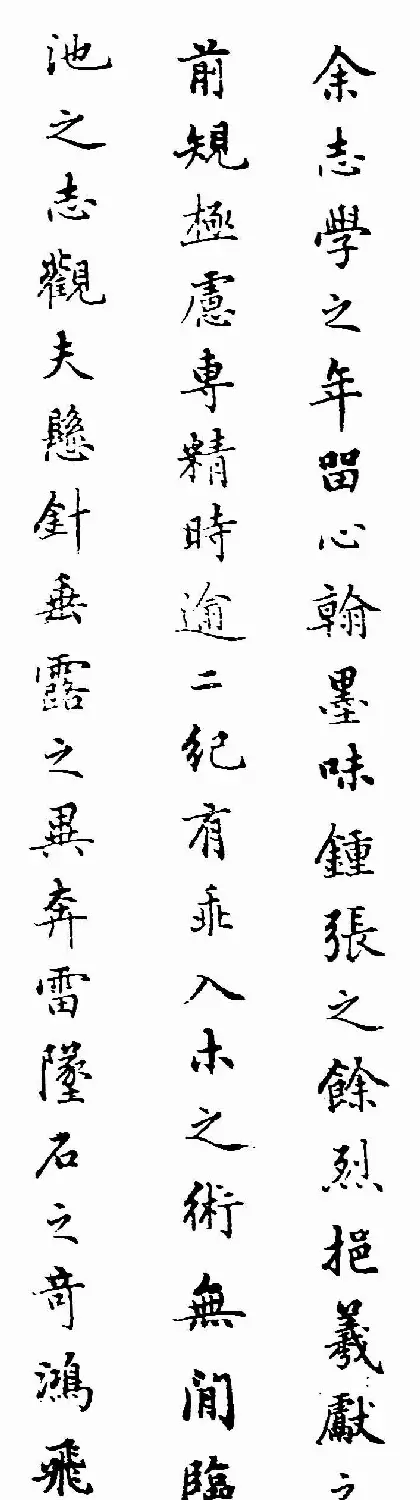 余志學之年畱心翰墨味鍾張之餘烈挹羲獻之
前規極慮專精時逾二紀有乖入木之術無間臨
池之志觀夫懸針垂露之異奔雷墜石之奇鴻飛